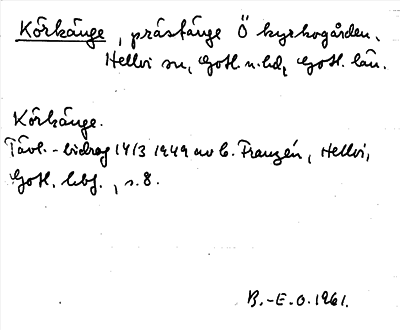 Körkänge, prästänge Ö kyrkogården.
Hellvi sn, Gotl. n. hd, Gotl. län.
Körkänge.
Tävl.-bidrag 14/3 1949 av C. Franzén, Hellvi,
Gotl. hbf., s. 8.
B.-E. O. 1961.